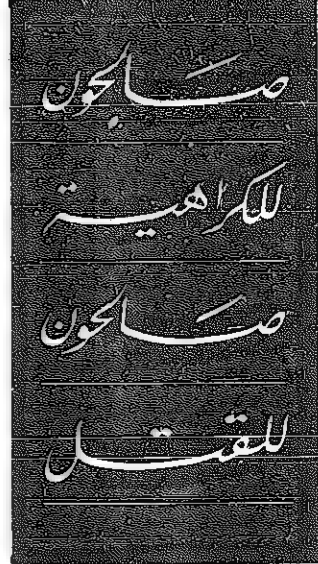 صالحون
للكراهية
صالحون
للقتل